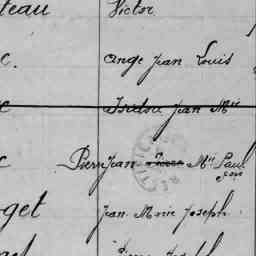 teau Victor
c. Ange Jean Louis
c Isidore Jean Mie
c Pierre Jean Mie Paul
get Jean Marie Joseph